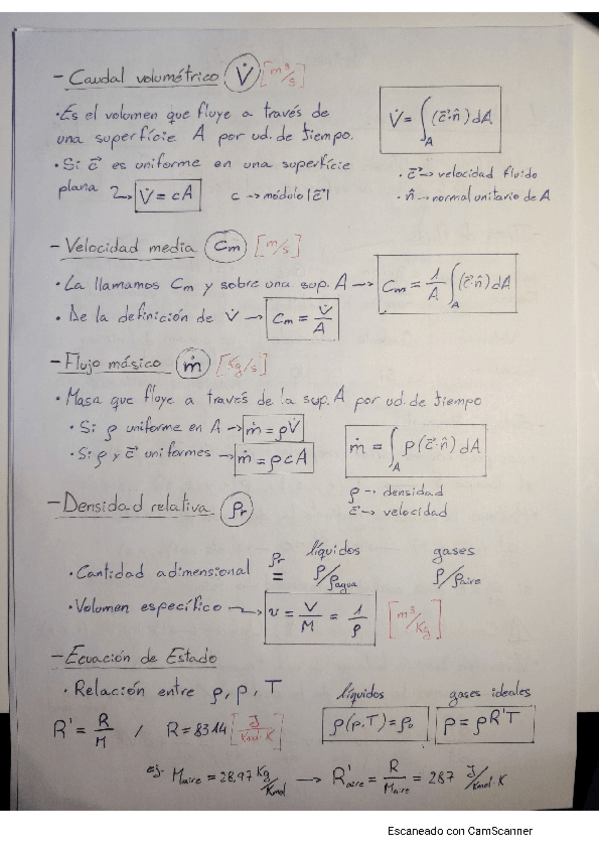 - Caudal volumétrico V̇ [m³/s]
· Es el volumen que fluye a través de
una superfície A por ud. de tiempo.
V̇ = ∫_A (c⃗·n̂) dA
· Si c⃗ es uniforme en una superfície
plana → V̇ = cA   c → módulo |c⃗|
· c⃗ → velocidad fluido
· n̂ → normal unitario de A
- Velocidad media Cm [m/s]
· La llamamos Cm y sobre una sup. A → Cm = 1/A ∫_A (c⃗·n̂) dA
· De la definición de V̇ → Cm = V̇/A
- Flujo másico ṁ [Kg/s]
· Masa que fluye a través de la sup. A por ud. de tiempo
· Si ρ uniforme en A → ṁ = ρV̇
· Si ρ y c⃗ uniformes → ṁ = ρcA
ṁ = ∫_A ρ(c⃗·n̂) dA
ρ → densidad
c⃗ → velocidad
- Densidad relativa ρr
líquidos   gases
· Cantidad adimensional ρr = ρ/ρagua   ρ/ρaire
· Volumen específico → v = V/M = 1/ρ [m³/Kg]
- Ecuación de Estado
· Relación entre ρ, p, T   líquidos   gases ideales
R' = R/M / R = 8314 [J/Kmol·K]   ρ(p,T) = ρ₀   p = ρR'T
ej. Maire = 28,97 Kg/Kmol → R'aire = R/Maire = 287 J/Kmol·K
Escaneado con CamScanner